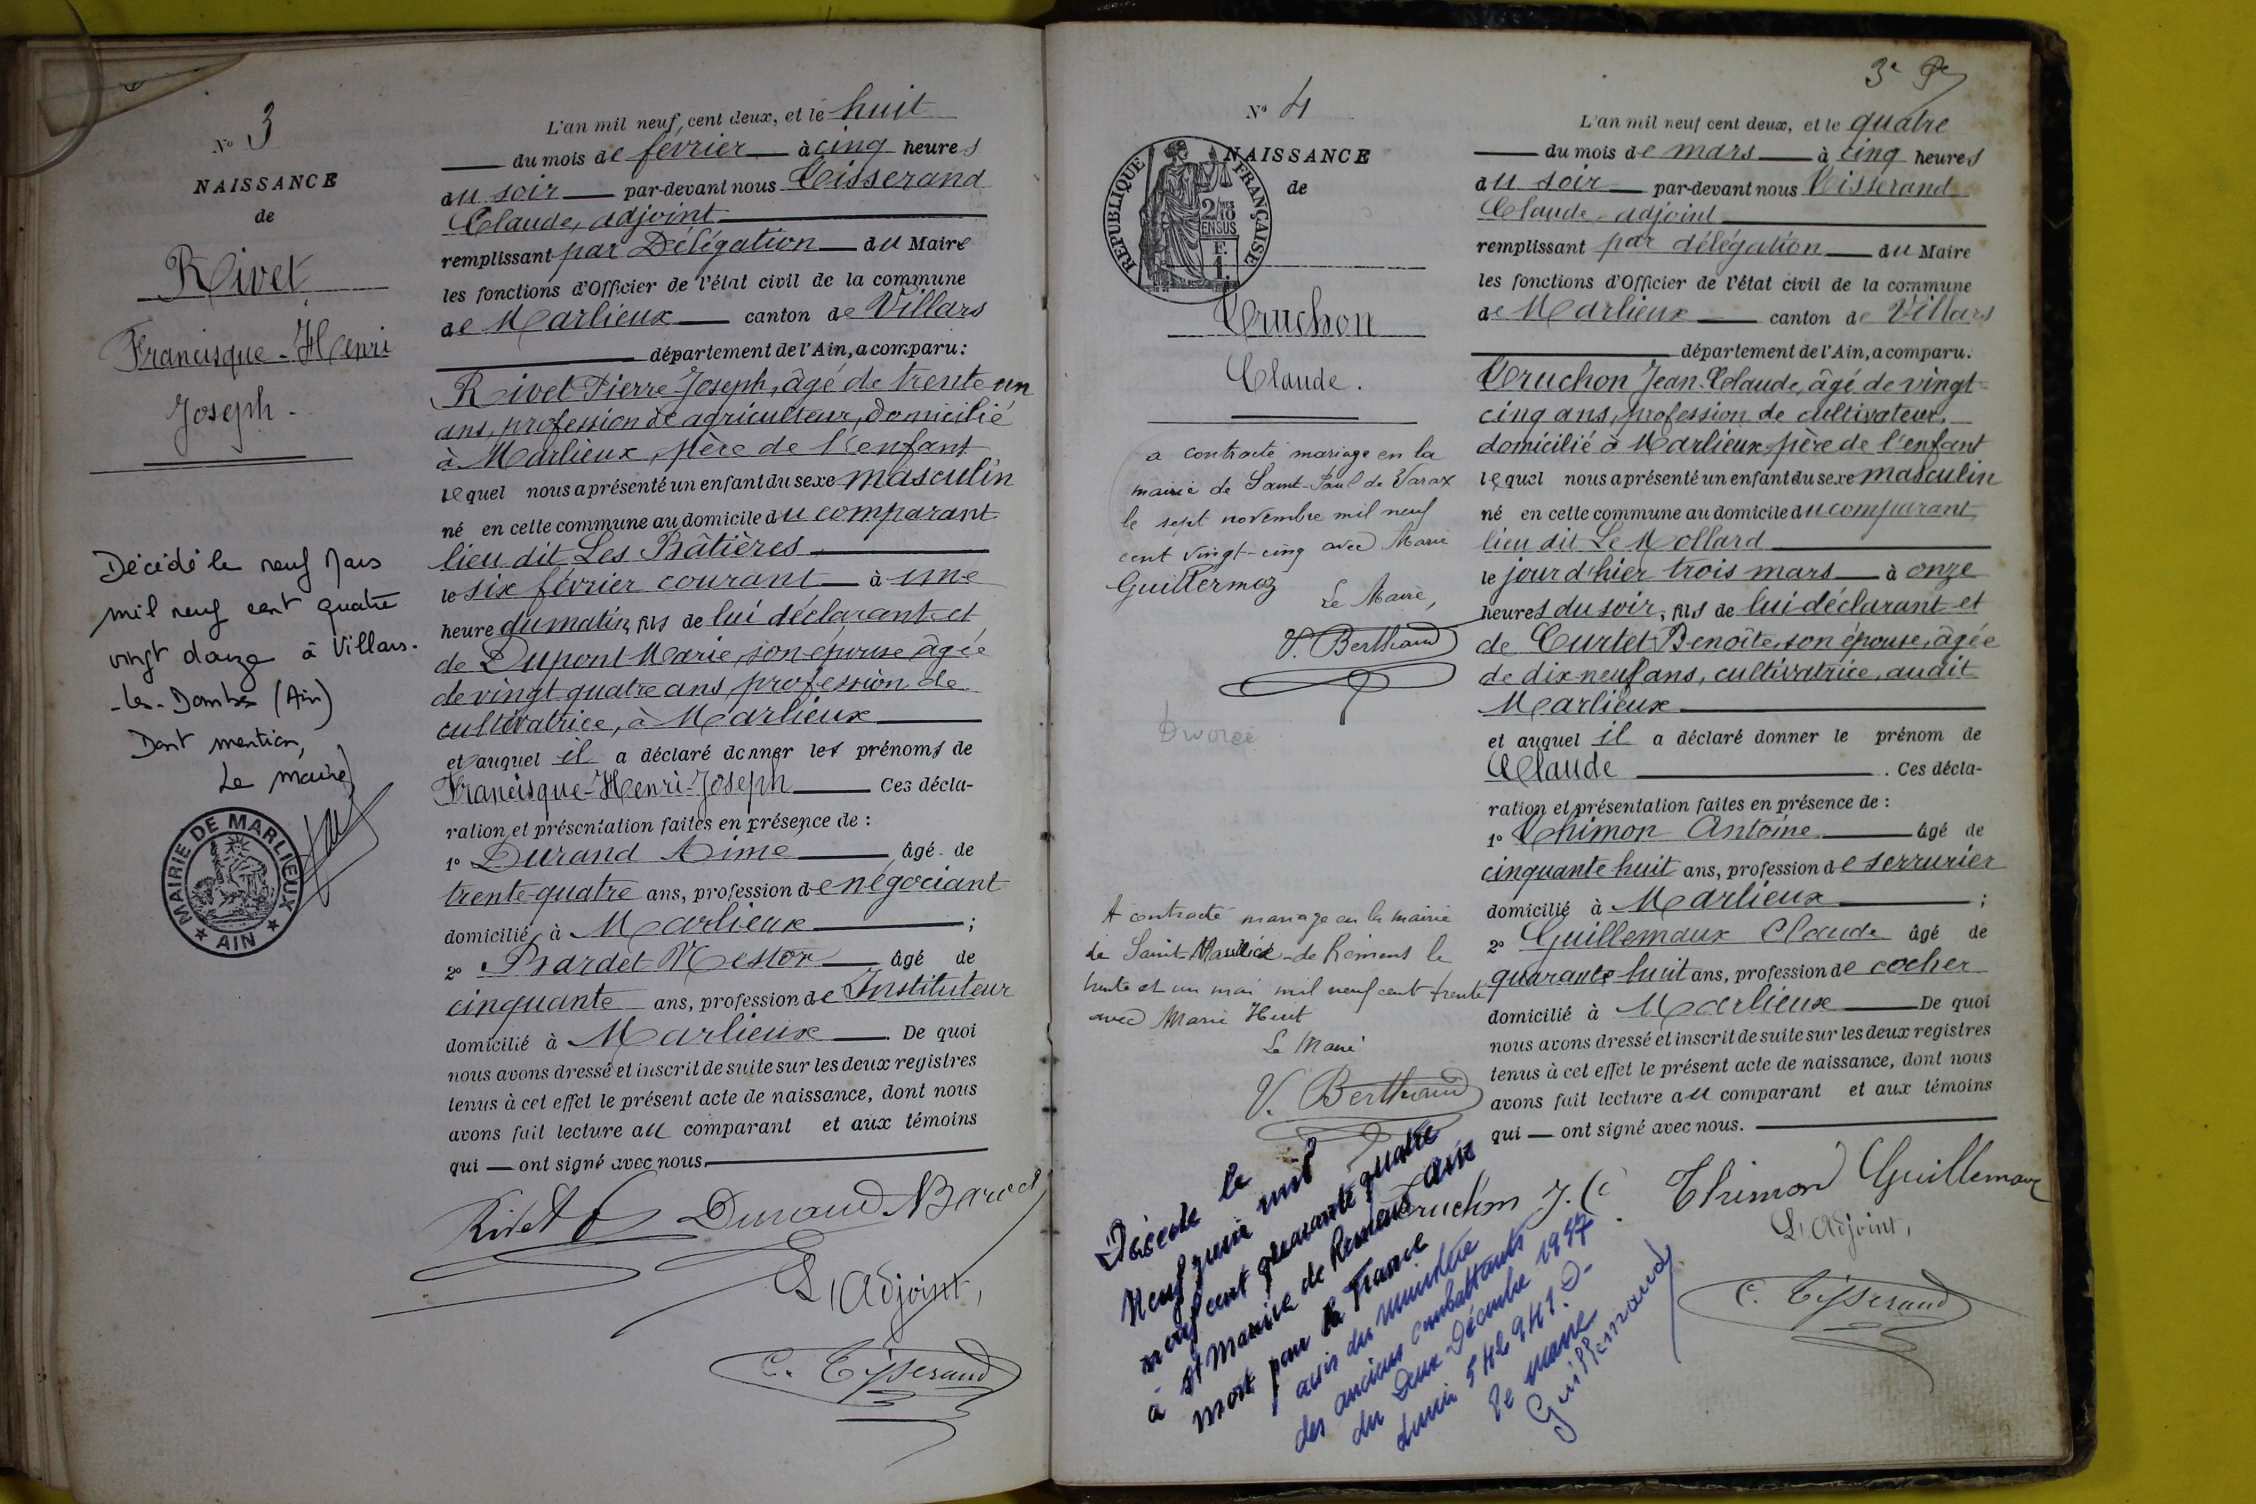 N° 3
NAISSANCE
de
Rivet
Francisque-Henri
Joseph.
Décédé le neuf Mars
mil neuf cent quatre
vingt douze à Villars.
-les-Dombes (Ain)
Dont mention,
Le maire
MAIRIE DE MARLIEUX
★ AIN ★
L'an mil neuf cent deux, et le huit
du mois de février à cinq heures
du soir par-devant nous Tisserand
Claude, adjoint
remplissant par Délégation du Maire
les fonctions d'Officier de l'état civil de la commune
de Marlieux canton de Villars
département de l'Ain, a comparu:
Rivet Pierre Joseph, âgé de trente un
ans, profession de agriculteur, domicilié
à Marlieux, père de l'enfant
lequel nous a présenté un enfant du sexe masculin
né en cette commune au domicile du comparant
lieu dit Les Bâtières
le six février courant à une
heure du matin, fils de lui déclarant et
de Dupont Marie, son épouse âgée
de vingt quatre ans, profession de
cultivatrice, à Marlieux
et auquel il a déclaré donner les prénoms de
Francisque-Henri-Joseph Ces décla-
ration et présentation faites en présence de :
1° Durand Aimé âgé de
trente-quatre ans, profession de négociant
domicilié à Marlieux ;
2° Bardet Nestor âgé de
cinquante ans, profession de Instituteur
domicilié à Marlieux. De quoi
nous avons dressé et inscrit de suite sur les deux registres
tenus à cet effet le présent acte de naissance, dont nous
avons fait lecture au comparant et aux témoins
qui — ont signé avec nous.
Rivet Durand N Bardet
L'Adjoint,
C. Tisserand
3e
N° 4
NAISSANCE
de
REPUBLIQUE FRANÇAISE
2/10 EN SUS
F.
1.
Truchon
Claude.
a contracté mariage en la
mairie de Saint-Paul de Varax
le sept novembre mil neuf
cent vingt-cinq avec Marie
Guillermoz
Le Maire,
V. Berthaud
Divorcé
A contracté mariage en la mairie
de Saint-Maurice-de-Rémens le
trente et un mai mil neuf cent trente
avec Marie Huet
Le Maire
V. Berthaud
Décédé le
Neuf juin mil
neuf cent quarante quatre
à St Maurice de Rémens Ain
mort pour la France
avis du ministère
des anciens combattants
du Deux Décembre 1947
Le maire
Guillemaud
L'an mil neuf cent deux, et le quatre
du mois de mars à cinq heures
du soir par-devant nous Tisserand
Claude, adjoint
remplissant par délégation du Maire
les fonctions d'Officier de l'état civil de la commune
de Marlieux canton de Villars
département de l'Ain, a comparu.
Truchon Jean-Claude, âgé de vingt-
cinq ans, profession de cultivateur,
domicilié à Marlieux, père de l'enfant
lequel nous a présenté un enfant du sexe masculin
né en cette commune au domicile du comparant
lieu dit Le Mollard
le jour d'hier trois mars à onze
heures du soir, fils de lui déclarant et
de Curtet Benoîte, son épouse, âgée
de dix neuf ans, cultivatrice, audit
Marlieux
et auquel il a déclaré donner le prénom de
Claude. Ces décla-
ration et présentation faites en présence de :
1° Thimon Antoine âgé de
cinquante huit ans, profession de serrurier
domicilié à Marlieux ;
2° Guillemaux Claude âgé de
quarante huit ans, profession de cocher
domicilié à Marlieux De quoi
nous avons dressé et inscrit de suite sur les deux registres
tenus à cet effet le présent acte de naissance, dont nous
avons fait lecture au comparant et aux témoins
qui — ont signé avec nous.
Truchon J. C. Thimon Guillemaux
L'Adjoint,
C. Tisserand